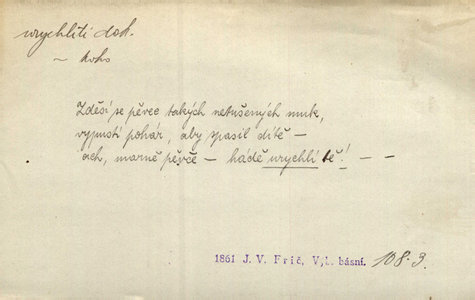 urychliti dok.
~ koho
Zděsí se pěvec takých netušených muk,
vypustí pohár, aby spasil dítě —
ach, marně pěvče — hádě urychlí tě! — —
1861 J. V. Frič, Vyb. básní. 108.3.